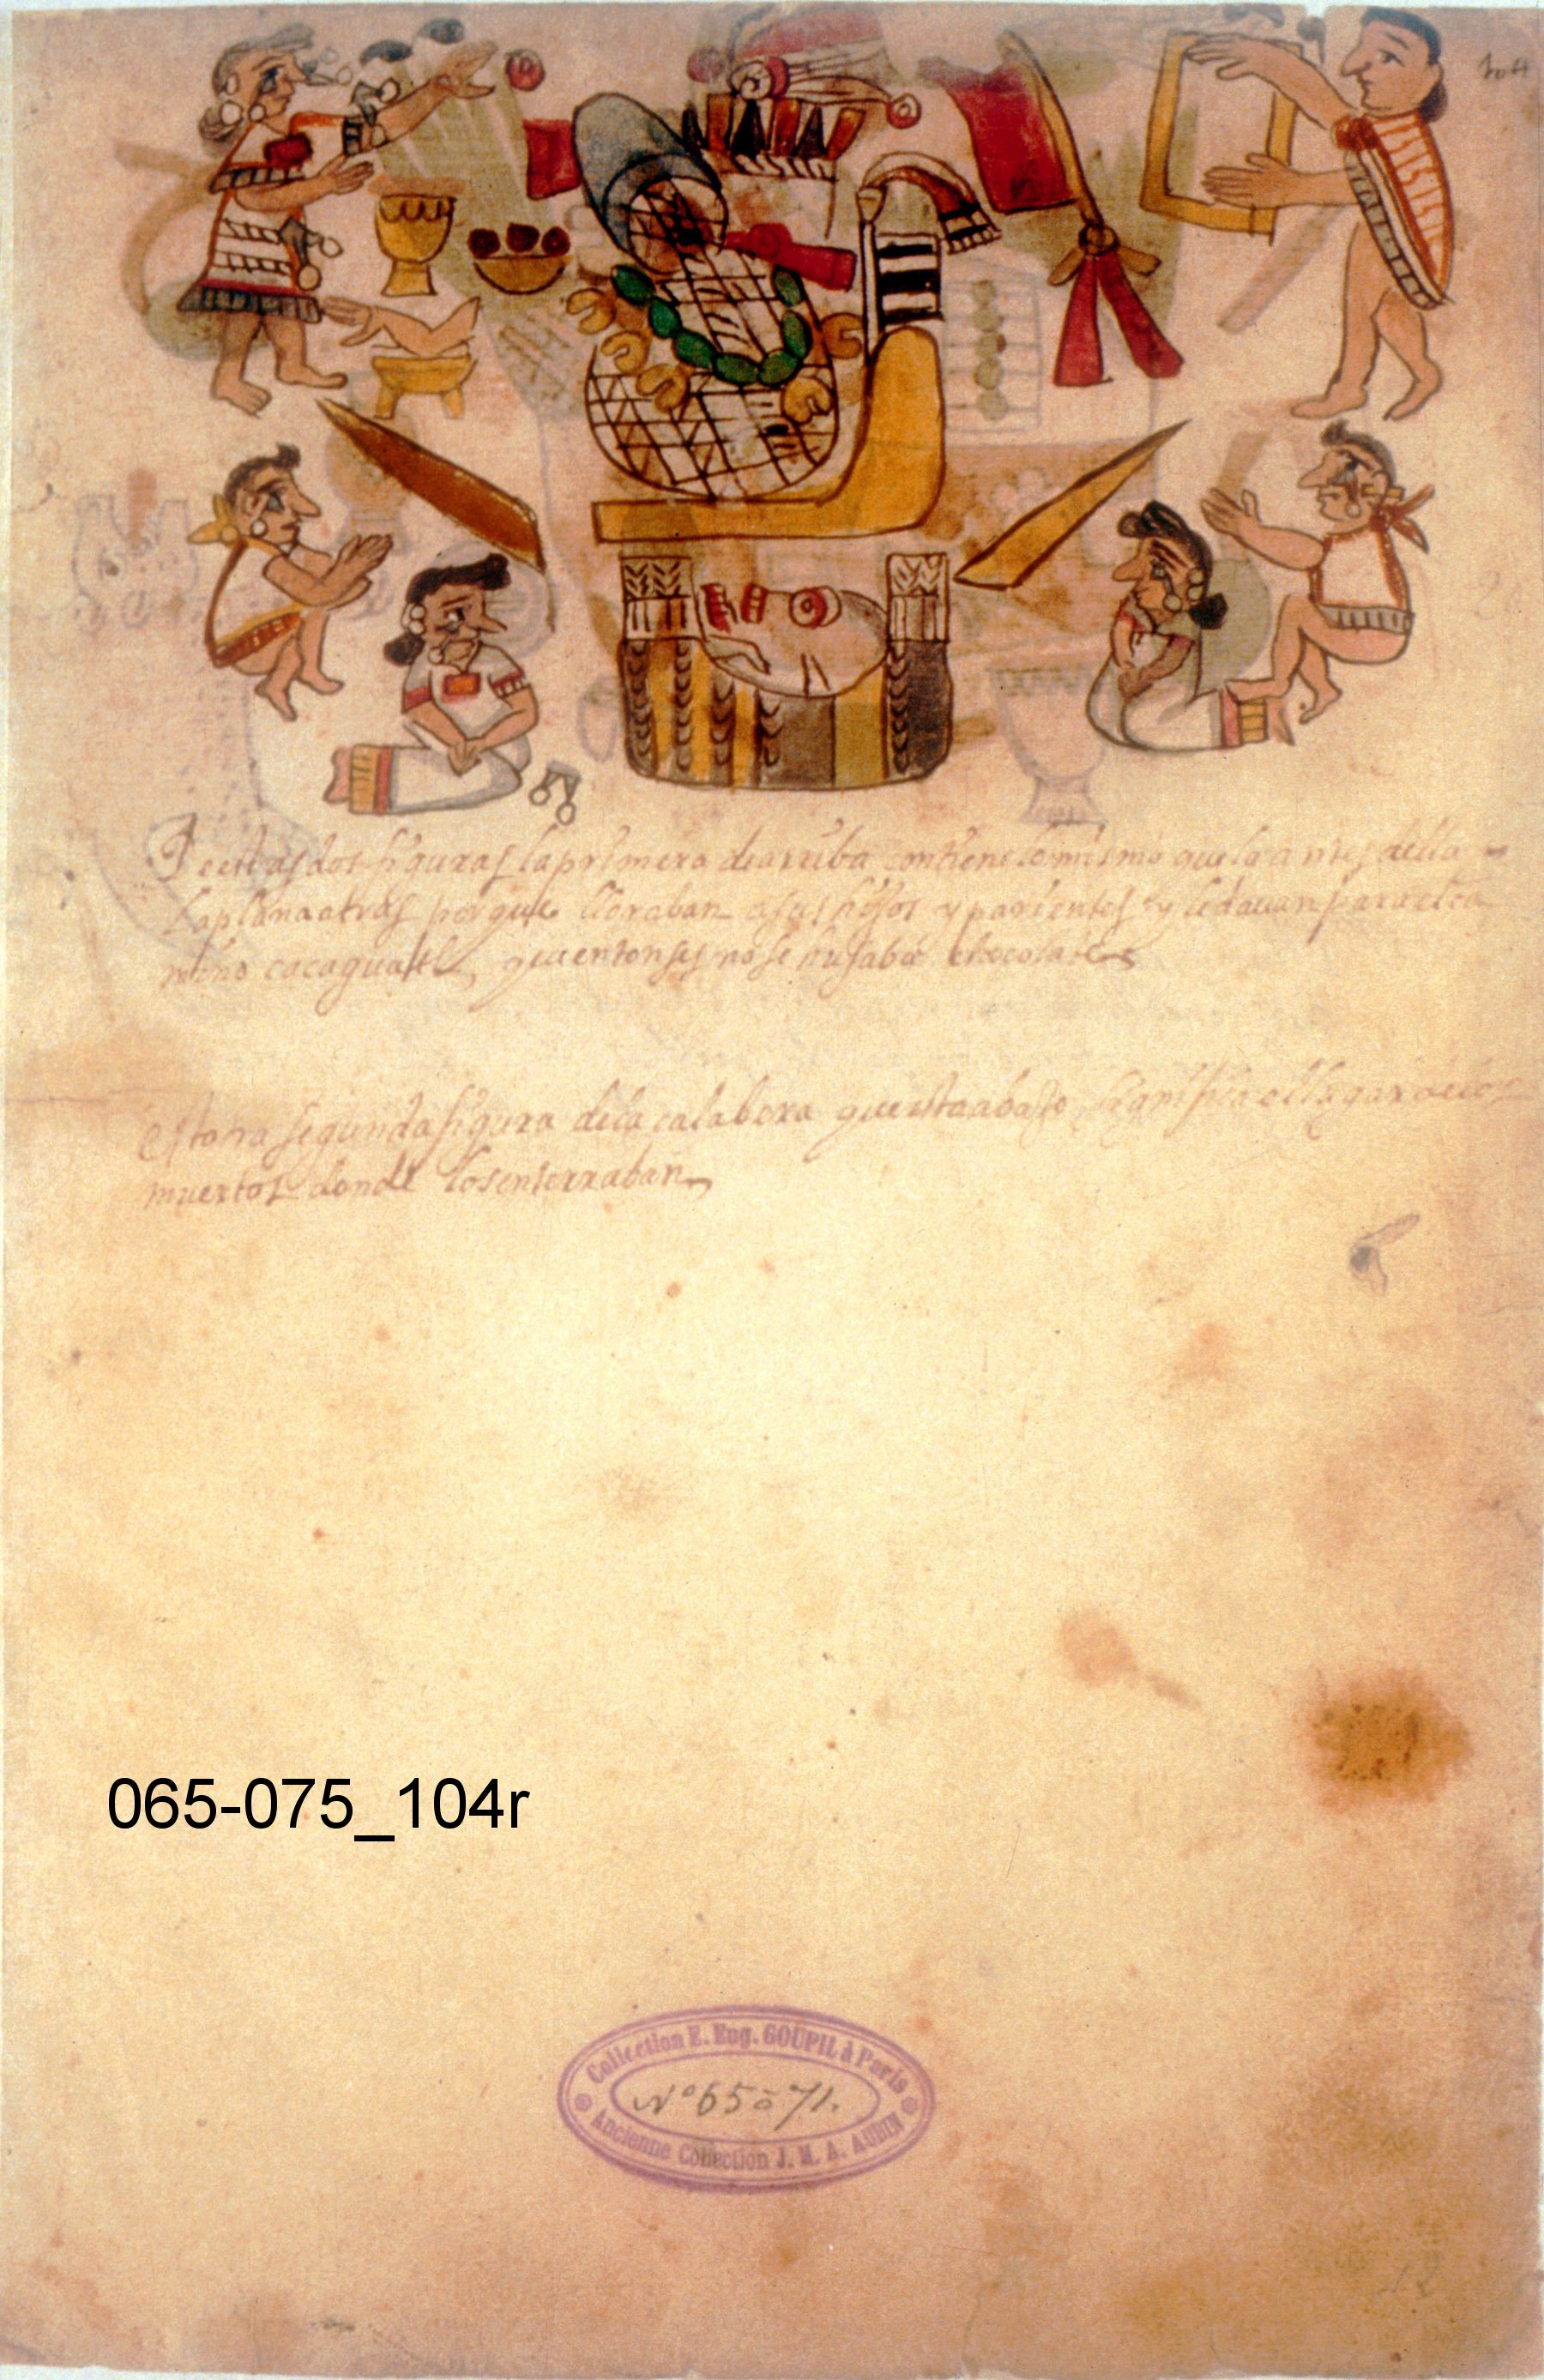 104
De estas dos figuras la primera de arriba contiene lo mismo que la antes della
la plana atras porque lloraban a sus hijos y parientes y le dauan para el ca
mino cacaguatl, que entonses no se husaba chocolate
esta otra segunda figura de la calabera que esta abajo significa el lugar de los
muertos donde los enterraban
065-075_104r
Collection E. Eug. GOUPIL à Paris
Nº 65 à 71.
Ancienne Collection J. M. A. AUBIN